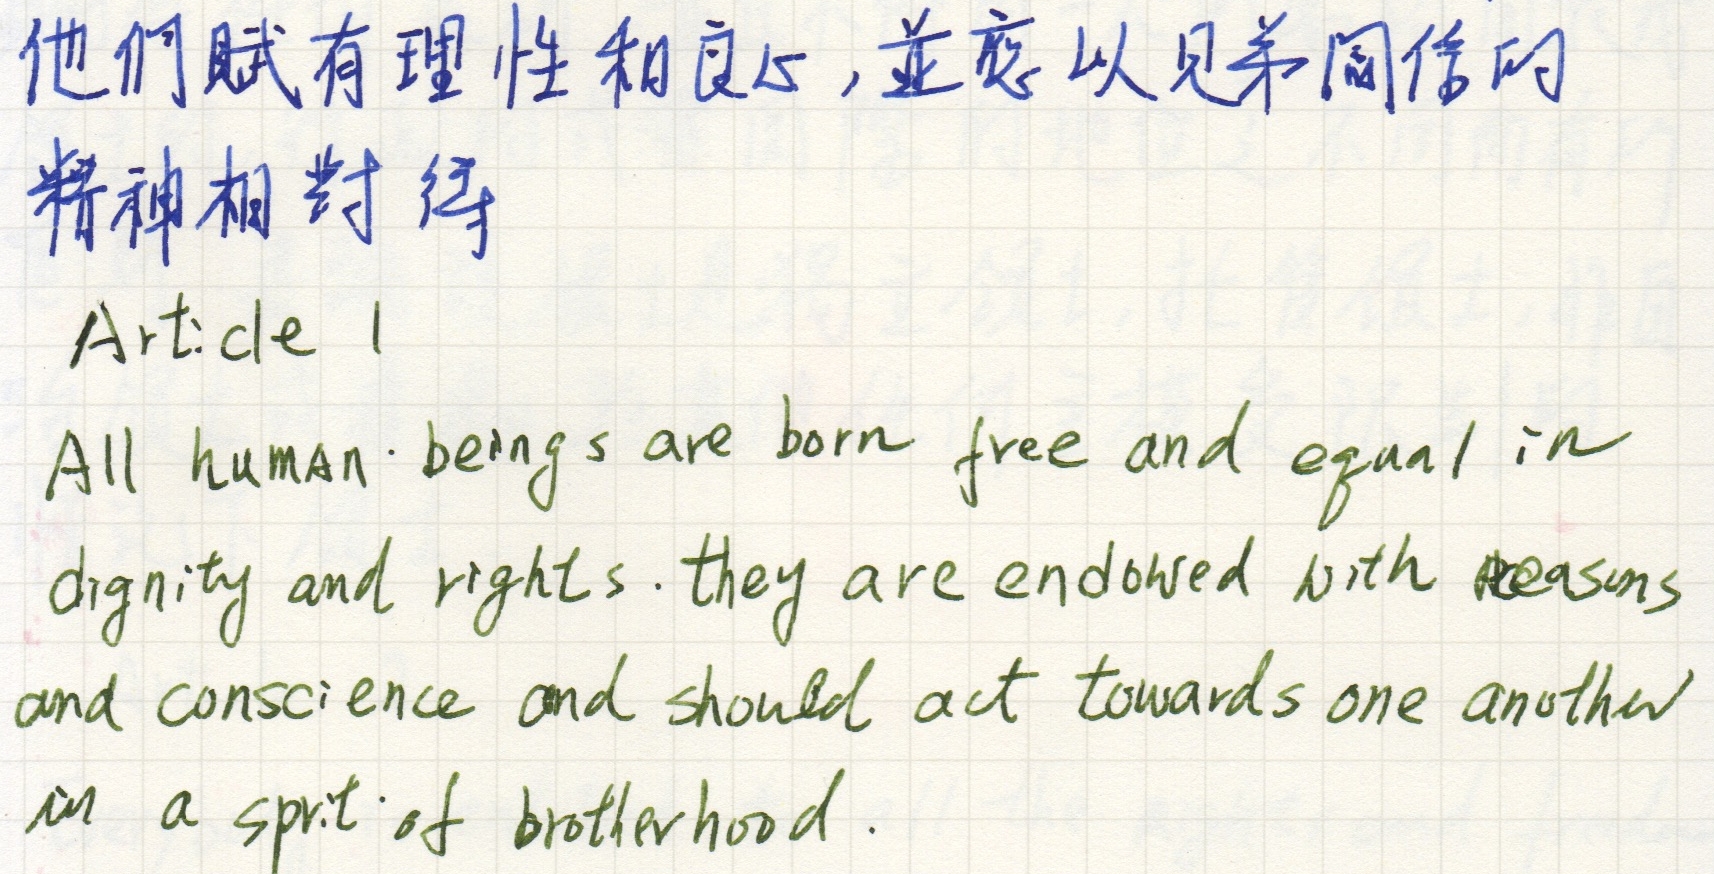 他們賦有理性和良心,並應以兄弟關係的
精神相對待
Article 1
All human beings are born free and equal in
dignity and rights. they are endowed with reasons
and conscience and should act towards one another
in a sprit of brotherhood.